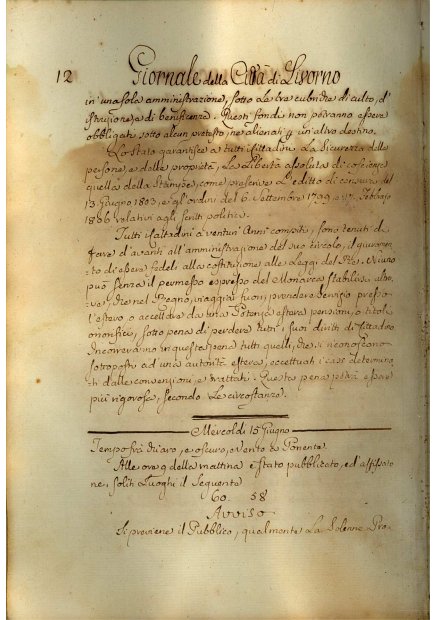 12 Giornale della Città di Livorno
in una sola amministrazione, sotto le tre rubriche di culto, d'
istruzione, e di beneficenza. Questi fondi non potranno essere
obbligati sotto alcun pretesto, ne alienati p un'altro destino.
Lo Stato garantisce a tutti i Cittadini la sicurezza delle
persone, e delle proprietà, la Libertà assoluta di coscienza
quella della Stampa, come prescrive l'editto di censura del
13 Giugno 1803, e gli ordini del 6. Settembre 1799, e Febrajo
1806 relativi agli scritti politici.
Tutti i Cittadini a ventun' Anni compiti, sono tenuti di
fare d'avanti all'amministrazione del suo circolo, il giuramen-
to di essere fedeli alla costituzione alle Leggi del Rè. Niuno
può senza il permesso espresso del Monarca stabilirsi altro-
ve, che nel Regno, viaggiar fuori, prendere servizio presso
l'estero o accettare da una Potenza estera pensioni, o titoli
onorifici, sotto pena di perdere tutti i suoi diritti di Cittadino.
Incorreranno in questa pena tutti quelli, che si riconoscano
sotroposti ad una autorità estera, eccettuati i casi determina-
ti dalle convenzioni, e trattati. Questa pena potrà essere
più rigorosa, secondo le circostanze.
Mercoldi 15 Giugno
Tempo frà chiaro, e oscuro, e Vento a Ponente
Alle ore 9 della mattina è stato pubblicato, ed'affisso
ne, soliti Luoghi il Seguente
60. 58
Avviso
Si previene il Pubblico, qualmente la Solenne Pro-